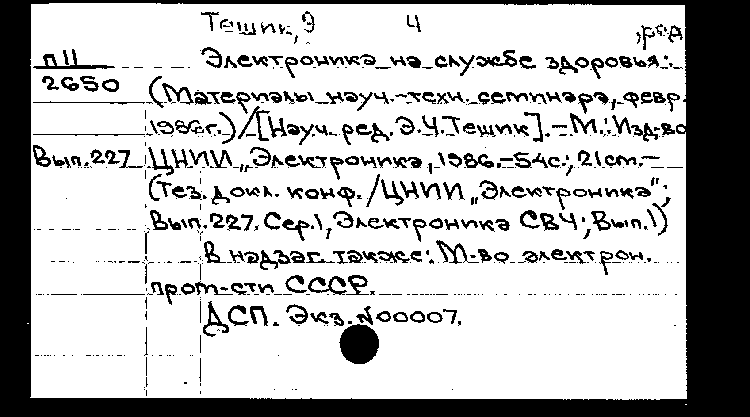 Тешик, Э Ч ,ред
П11 Электроника на службе здоровья:
2650 (Материалы науч.-техн. семинара, февр.
1986г.)/[Науч. ред. Э.Ч.Тешик].-М.:Изд-во
Вып.227 ЦНИИ „Электроника, 1986.-54с.; 21см.-
(Тез. докл. конф./ЦНИИ „Электроника";
Вып.227. Сер.1, Электроника СВЧ; Вып.1)
В надзаг. также: М-во электрон.
пром-сти СССР.
ДСП. Экз. N00007.